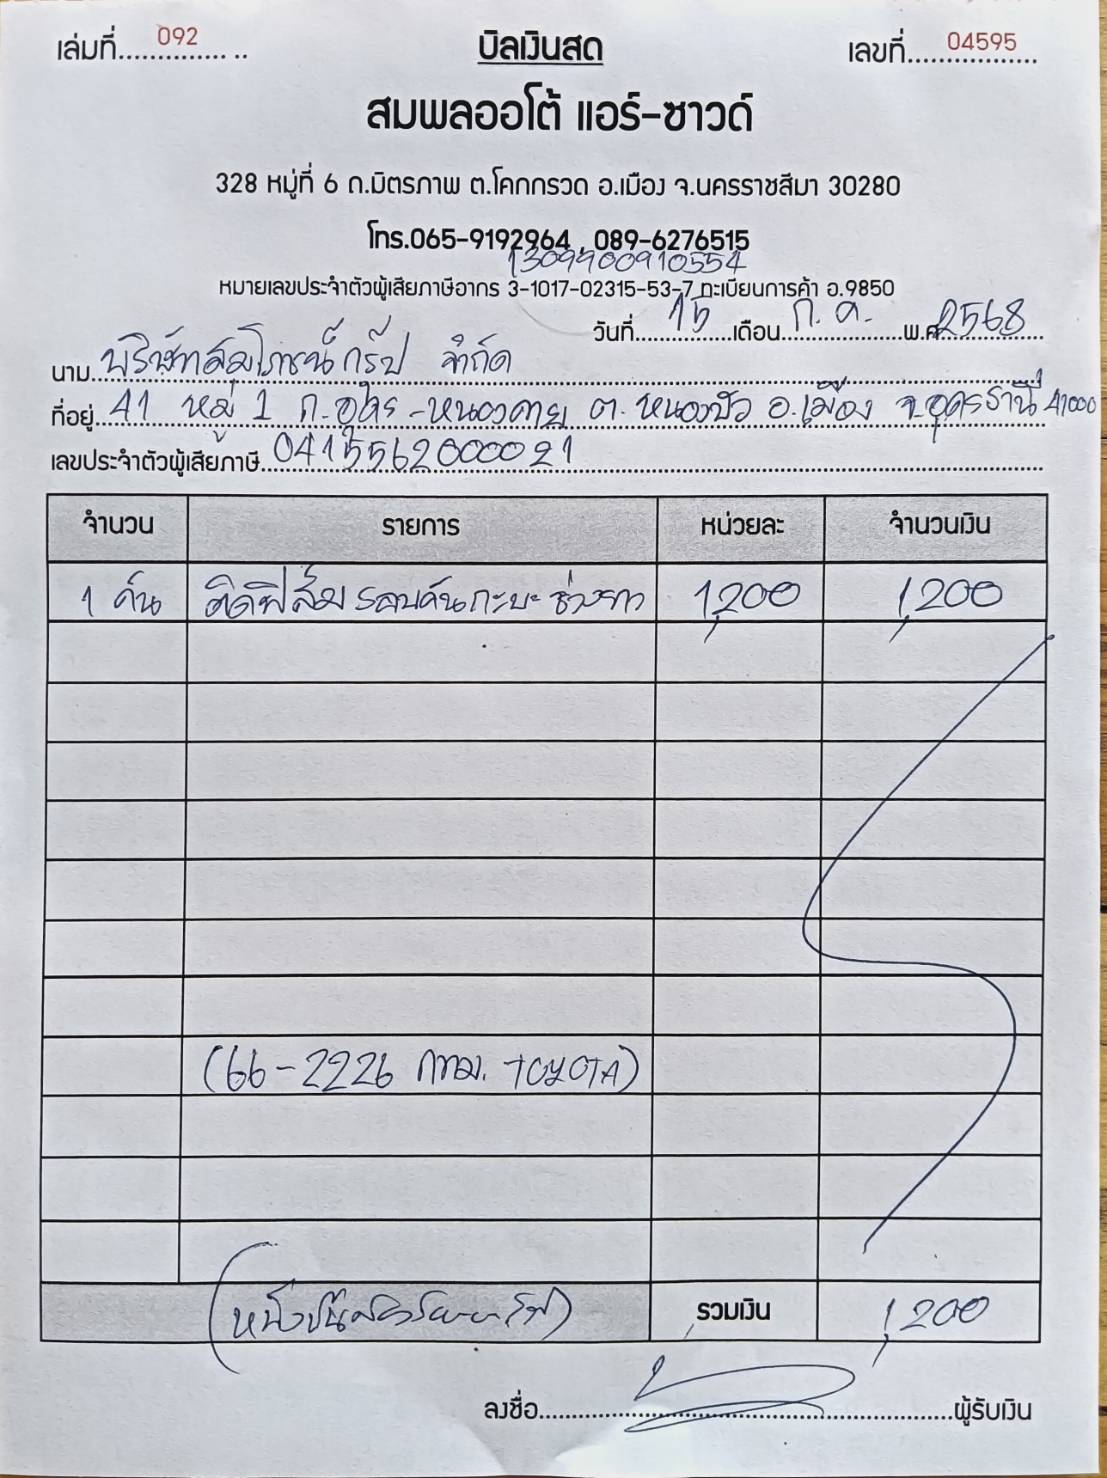 เล่มที่.............. .. 092
บิลเงินสด
เลขที่................. 04595
สมพลออโต้ แอร์-ซาวด์
328 หมู่ที่ 6 ถ.มิตรภาพ ต.โคกกรวด อ.เมือง จ.นครราชสีมา 30280
โทร.065-9192964 , 089-6276515
1309900910554
หมายเลขประจำตัวผู้เสียภาษีอากร 3-1017-02315-53-7 ทะเบียนการค้า อ.9850
วันที่ 15 เดือน ก.ค. พ.ศ. 2568
นาม บริษัทสมโภชน์กรุ๊ป จำกัด
ที่อยู่ 41 หมู่ 1 ถ.อุดร-หนองคาย ต.หนองบัว อ.เมือง จ.อุดรธานี 41000
เลขประจำตัวผู้เสียภาษี 0415562000021
จำนวน รายการ หน่วยละ จำนวนเงิน
1 คัน ติดฟิล์มรอบคันกะบะ ช่วงยาว 1,200 1,200
(66-2226 กทม. TOYOTA)
(หนึ่งพันสองร้อยบาท) รวมเงิน 1,200
ลงชื่อ ผู้รับเงิน